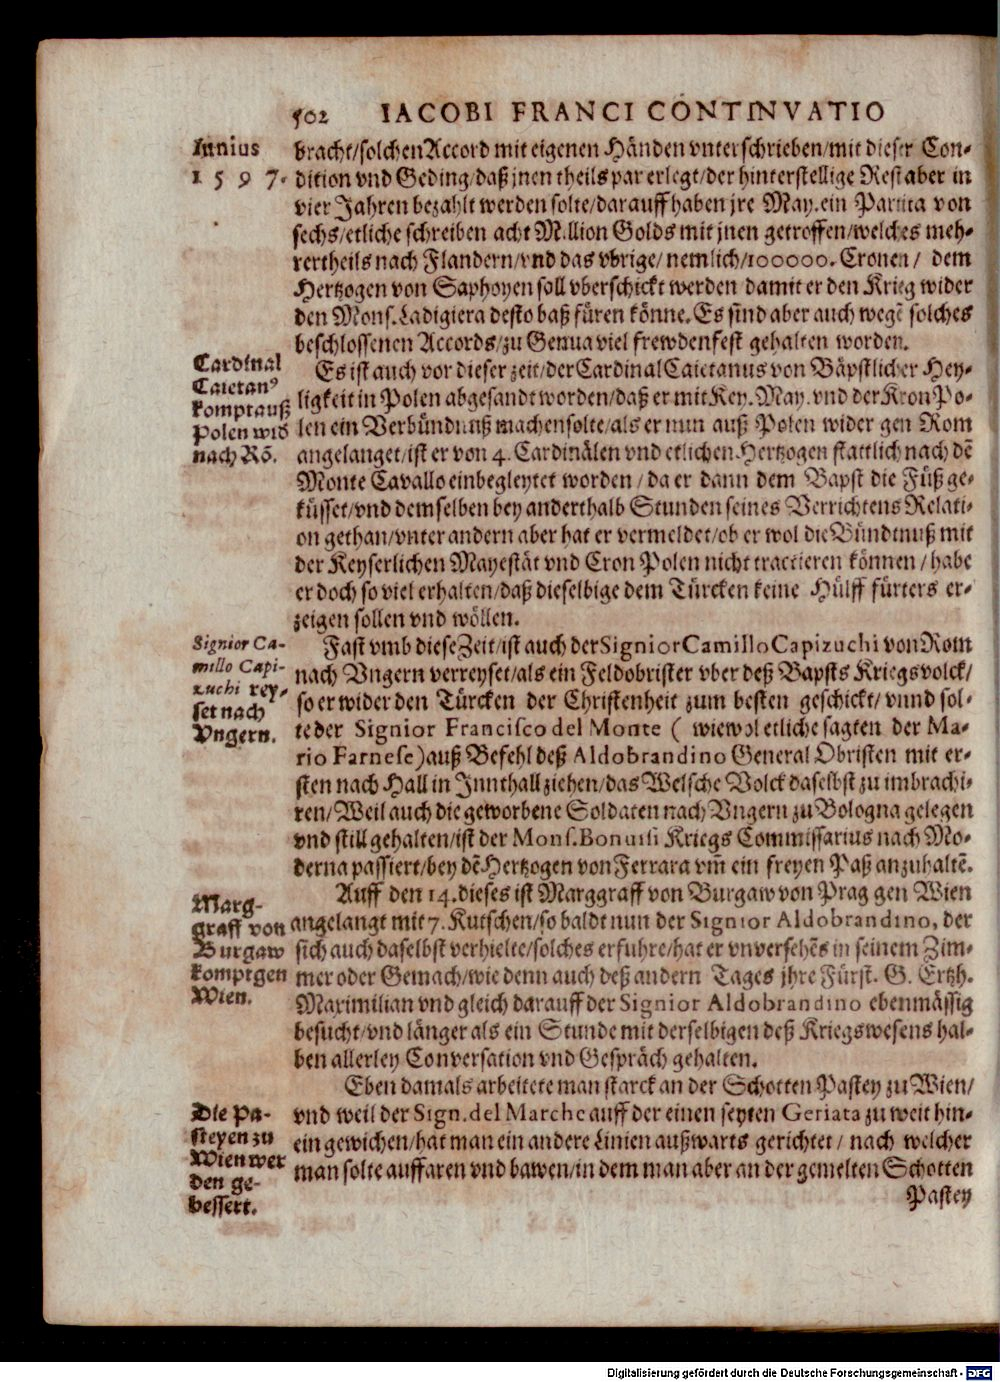 502 IACOBI FRANCI CONTINVATIO
Iunius
1 5 9 7.
bracht/solchen Accord mit eigenen Händen vnterschrieben/mit dieser Con-
dition vnd Geding/daß jnen theils par erlegt/der hinterstellige Rest aber in
vier Jahren bezahlt werden solte/darauff haben jre May. ein Partita von
sechs/etliche schreiben acht Million Golds mit jnen getroffen/welches meh-
rertheils nach Flandern/vnd das vbrige/nemlich/100000. Cronen/ dem
Hertzogen von Saphoyen soll vberschickt werden damit er den Krieg wider
den Mons. Ladigiera desto baß füren könne. Es sind aber auch wegē solches
beschlossenen Accords/zu Genua viel frewdenfest gehalten worden.
Cardinal
Caietanꝰ
komptauß
Polen wid
nach Rō.
Es ist auch vor dieser zeit/der Cardinal Caietanus von Bäpstlicher Hey-
ligkeit in Polen abgesandt worden/daß er mit Key. May. vnd der Kron Po-
len ein Verbündnuß machen solte/als er nun auß Polen wider gen Rom
angelanget/ist er von 4. Cardinälen vnd etlichen Hertzogen stattlich nach dē
Monte Cavallo einbegleytet worden/ da er dann dem Bapst die Füß ge-
küsset/vnd demselben bey anderthalb Stunden seines Verrichtens Relati-
on gethan/vnter andern aber hat er vermeldet/ob er wol die Bündtnuß mit
der Keyserlichen Mayestät vnd Cron Polen nicht tractieren können/ habe
er doch so viel erhalten/daß dieselbige dem Türcken keine Hülff fürters er-
zeigen sollen vnd wöllen.
Signior Ca-
millo Capi-
zuchi rey-
set nach
Vngern.
Fast vmb diese Zeit/ist auch der Signior Camillo Capizuchi von Rom
nach Vngern verreyset/als ein Feldobrister vber deß Bapsts Kriegsvolck/
so er wider den Türcken der Christenheit zum besten geschickt/ vnnd sol-
te der Signior Francisco del Monte ( wiewol etliche sagten der Ma-
rio Farnese) auß Befehl deß Aldobrandino General Obristen mit er-
sten nach Hall in Innthall ziehen/das Welsche Volck daselbst zu imbrachi-
ren/Weil auch die geworbene Soldaten nach Vngern zu Bologna gelegen
vnd still gehalten/ist der Mons. Bonuisi Kriegs Commissarius nach Mo-
derna passiert/bey dē Hertzogen von Ferrara vm̄ ein freyen Paß anzuhaltē.
Marg-
graff von
Burgaw
komptgen
Wien.
Auff den 14. dieses ist Marggraff von Burgaw von Prag gen Wien
angelangt mit 7. Kutschen/so baldt nun der Signior Aldobrandino, der
sich auch daselbst verhielte/solches erfuhre/hat er vnversehēs in seinem Zim-
mer oder Gemach/wie denn auch deß andern Tages jhre Fürst. G. Ertzh.
Maximilian vnd gleich darauff der Signior Aldobrandino ebenmässig
besucht/vnd länger als ein Stunde mit derselbigen deß Kriegswesens hal-
ben allerley Conversation vnd Gespräch gehalten.
Die Pa-
steyen zu
Wien wer
den ge-
bessert.
Eben damals arbeitete man starck an der Schotten Pastey zu Wien/
vnd weil der Sign. del Marche auff der einen seyten Geriata zu weit hin-
ein gewichen/hat man ein andere Linien außwarts gerichtet/ nach welcher
man solte auffaren vnd bawen/in dem man aber an der gemelten Schotten
Pastey
Digitalisierung gefördert durch die Deutsche Forschungsgemeinschaft - DFG